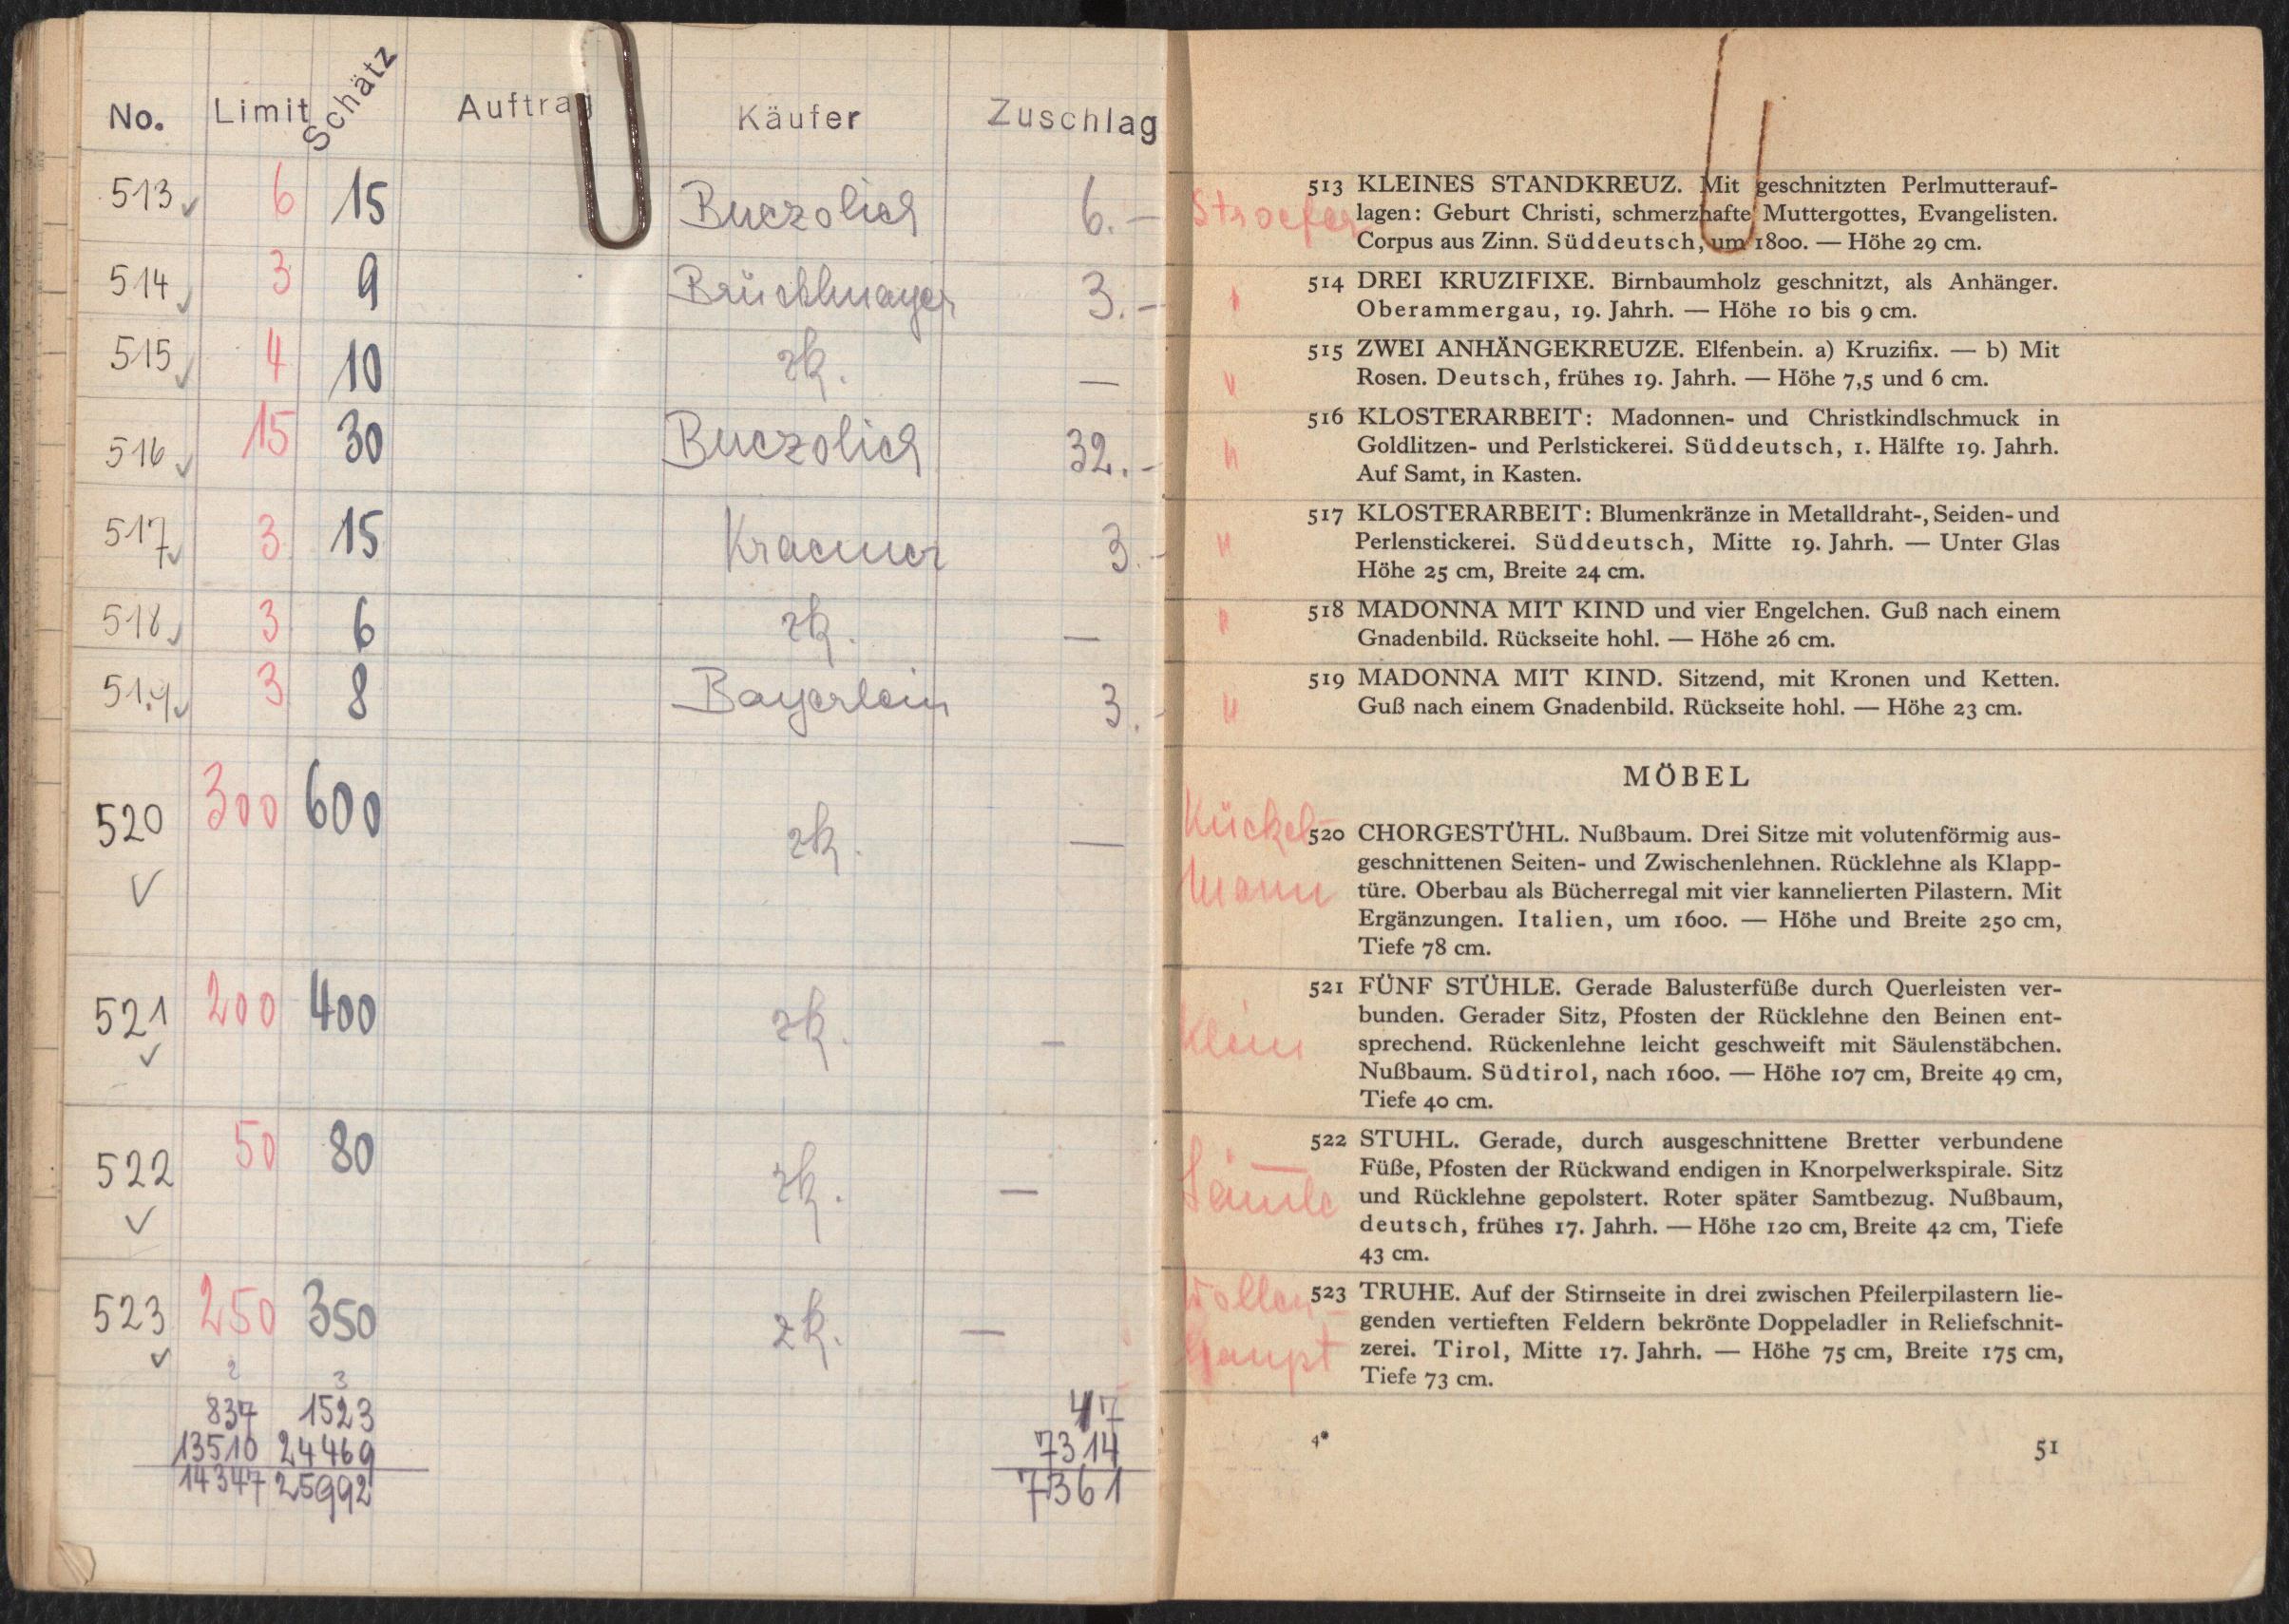 No. Limit Schätz Auftrag Käufer Zuschlag
513 6 15 Buczolich 6.–
514 3 9 Brüchlmayer 3.–
515 4 10 zk. —
516 15 30 Buczolich 32.–
517 3 15 Kraemer 3.–
518 3 6 zk. —
519 3 8 Bayerlein 3.–
520 300 600 zk. —
521 200 400 zk. –
522 50 80 zk. —
523 250 350 zk. —
2 3
837 1523 47
13510 24469 7314
14347 25992 7361
Stroefer
513 KLEINES STANDKREUZ. Mit geschnitzten Perlmutterauf-
lagen: Geburt Christi, schmerzhafte Muttergottes, Evangelisten.
Corpus aus Zinn. Süddeutsch, um 1800. — Höhe 29 cm.
" 514 DREI KRUZIFIXE. Birnbaumholz geschnitzt, als Anhänger.
Oberammergau, 19. Jahrh. — Höhe 10 bis 9 cm.
" 515 ZWEI ANHÄNGEKREUZE. Elfenbein. a) Kruzifix. — b) Mit
Rosen. Deutsch, frühes 19. Jahrh. — Höhe 7,5 und 6 cm.
" 516 KLOSTERARBEIT: Madonnen- und Christkindlschmuck in
Goldlitzen- und Perlstickerei. Süddeutsch, 1. Hälfte 19. Jahrh.
Auf Samt, in Kasten.
" 517 KLOSTERARBEIT: Blumenkränze in Metalldraht-, Seiden- und
Perlenstickerei. Süddeutsch, Mitte 19. Jahrh. — Unter Glas
Höhe 25 cm, Breite 24 cm.
" 518 MADONNA MIT KIND und vier Engelchen. Guß nach einem
Gnadenbild. Rückseite hohl. — Höhe 26 cm.
" 519 MADONNA MIT KIND. Sitzend, mit Kronen und Ketten.
Guß nach einem Gnadenbild. Rückseite hohl. — Höhe 23 cm.
MÖBEL
Kückel-
mann
520 CHORGESTÜHL. Nußbaum. Drei Sitze mit volutenförmig aus-
geschnittenen Seiten- und Zwischenlehnen. Rücklehne als Klapp-
türe. Oberbau als Bücherregal mit vier kannelierten Pilastern. Mit
Ergänzungen. Italien, um 1600. — Höhe und Breite 250 cm,
Tiefe 78 cm.
Klein
521 FÜNF STÜHLE. Gerade Balusterfüße durch Querleisten ver-
bunden. Gerader Sitz, Pfosten der Rücklehne den Beinen ent-
sprechend. Rückenlehne leicht geschweift mit Säulenstäbchen.
Nußbaum. Südtirol, nach 1600. — Höhe 107 cm, Breite 49 cm,
Tiefe 40 cm.
522 STUHL. Gerade, durch ausgeschnittene Bretter verbundene
Füße, Pfosten der Rückwand endigen in Knorpelwerkspirale. Sitz
und Rücklehne gepolstert. Roter später Samtbezug. Nußbaum,
deutsch, frühes 17. Jahrh. — Höhe 120 cm, Breite 42 cm, Tiefe
43 cm.
523 TRUHE. Auf der Stirnseite in drei zwischen Pfeilerpilastern lie-
genden vertieften Feldern bekrönte Doppeladler in Reliefschnit-
zerei. Tirol, Mitte 17. Jahrh. — Höhe 75 cm, Breite 175 cm,
Tiefe 73 cm.
4* 51